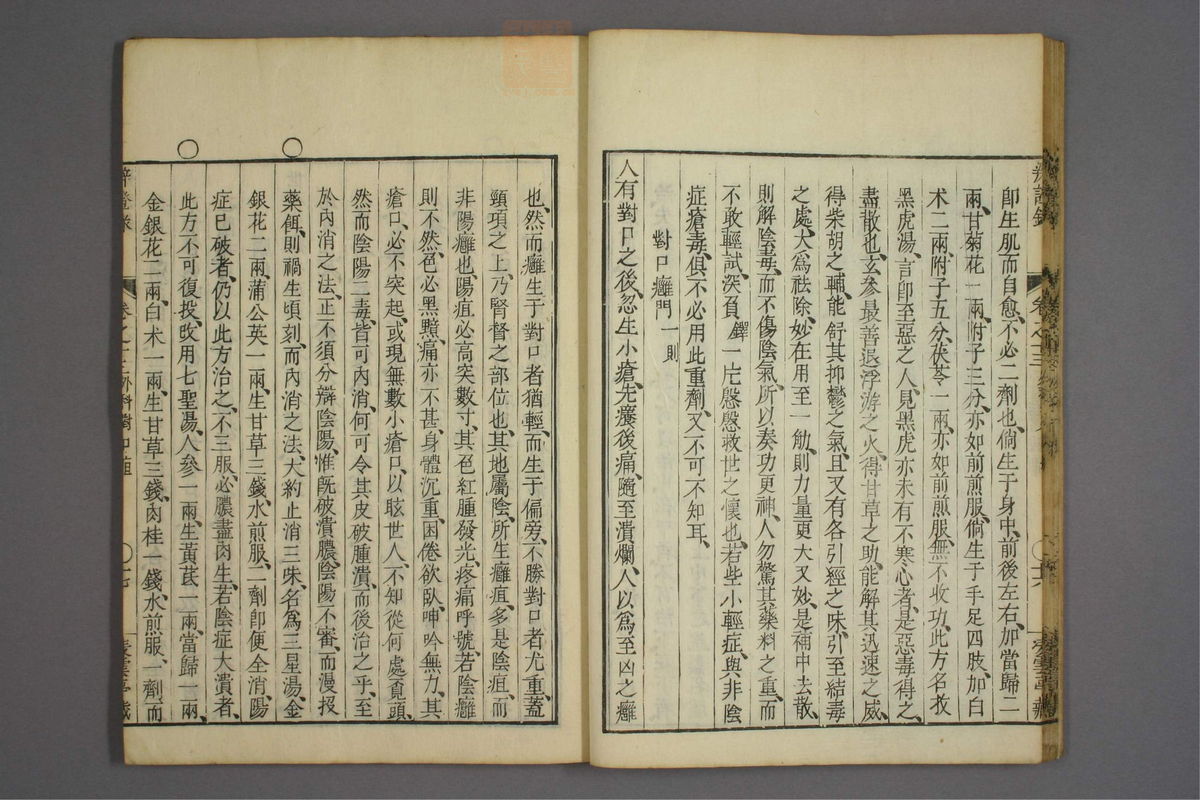 即生肌而自愈、不必二劑也、倘生于身中、前後左右、加當歸二
兩、甘菊花一兩、附子三分、亦如前煎服、倘生于手足四肢、加白
术二兩、附子五分、茯苓一兩、亦如前煎服、無不收功、此方名救
黑虎湯、言即至惡之人、見黑虎亦未有不寒心者、是惡毒得之、
盡散也、玄參最善退浮游之火、得甘草之助、能解其迅速之威、
得柴胡之輔、能舒其抑鬱之氣、且又有各引經之味、引至結毒
之處、大為祛除、妙在用至一觔、則力量更大、又妙是補中去散、
則解陰毒、而不傷陰氣、所以奏功更神、人勿驚其藥料之重、而
不敢輕試、深負鐸一片慇慇救世之懷也、若些小輕症、與非陰
症瘡毒、俱不必用此重劑、又不可不知耳、
對口癰門一則
人有對口之後、忽生小瘡、先癢後痛、隨至潰爛、人以為至凶之癰
也、然而癰生于對口者猶輕、而生于偏旁、不勝對口者尤重、蓋
頸項之上、乃腎督之部位也、其地屬陰、所生癰疽、多是陰疽、而
非陽癰也、陽疽必高突數寸、其色紅腫發光、疼痛呼號、若陰癰
則不然、色必黑黯、痛亦不甚、身體沉重、困倦欲臥、呻吟無力、其
瘡口、必不突起、或現無數小瘡口、以眩世人、不知從何處覓頭、
然而陰陽二毒、皆可內消、何可令其皮破腫潰、而後治之乎、至
於內消之法、正不須分辯陰陽、惟既破潰膿、陰陽不審、而漫投
藥餌、則禍生頃刻、而內消之法、大約止消三味、名為三星湯、金
銀花二兩、蒲公英一兩、生甘草三錢、水煎服、二劑即便全消、陽
症已破者、仍以此方治之、不三服、必膿盡肉生、若陰症大潰者、
此方不可復投、改用七聖湯、人參一兩、生黃芪一兩、當歸一兩、
金銀花二兩、白术一兩、生甘草三錢、肉桂一錢、水煎服、一劑而